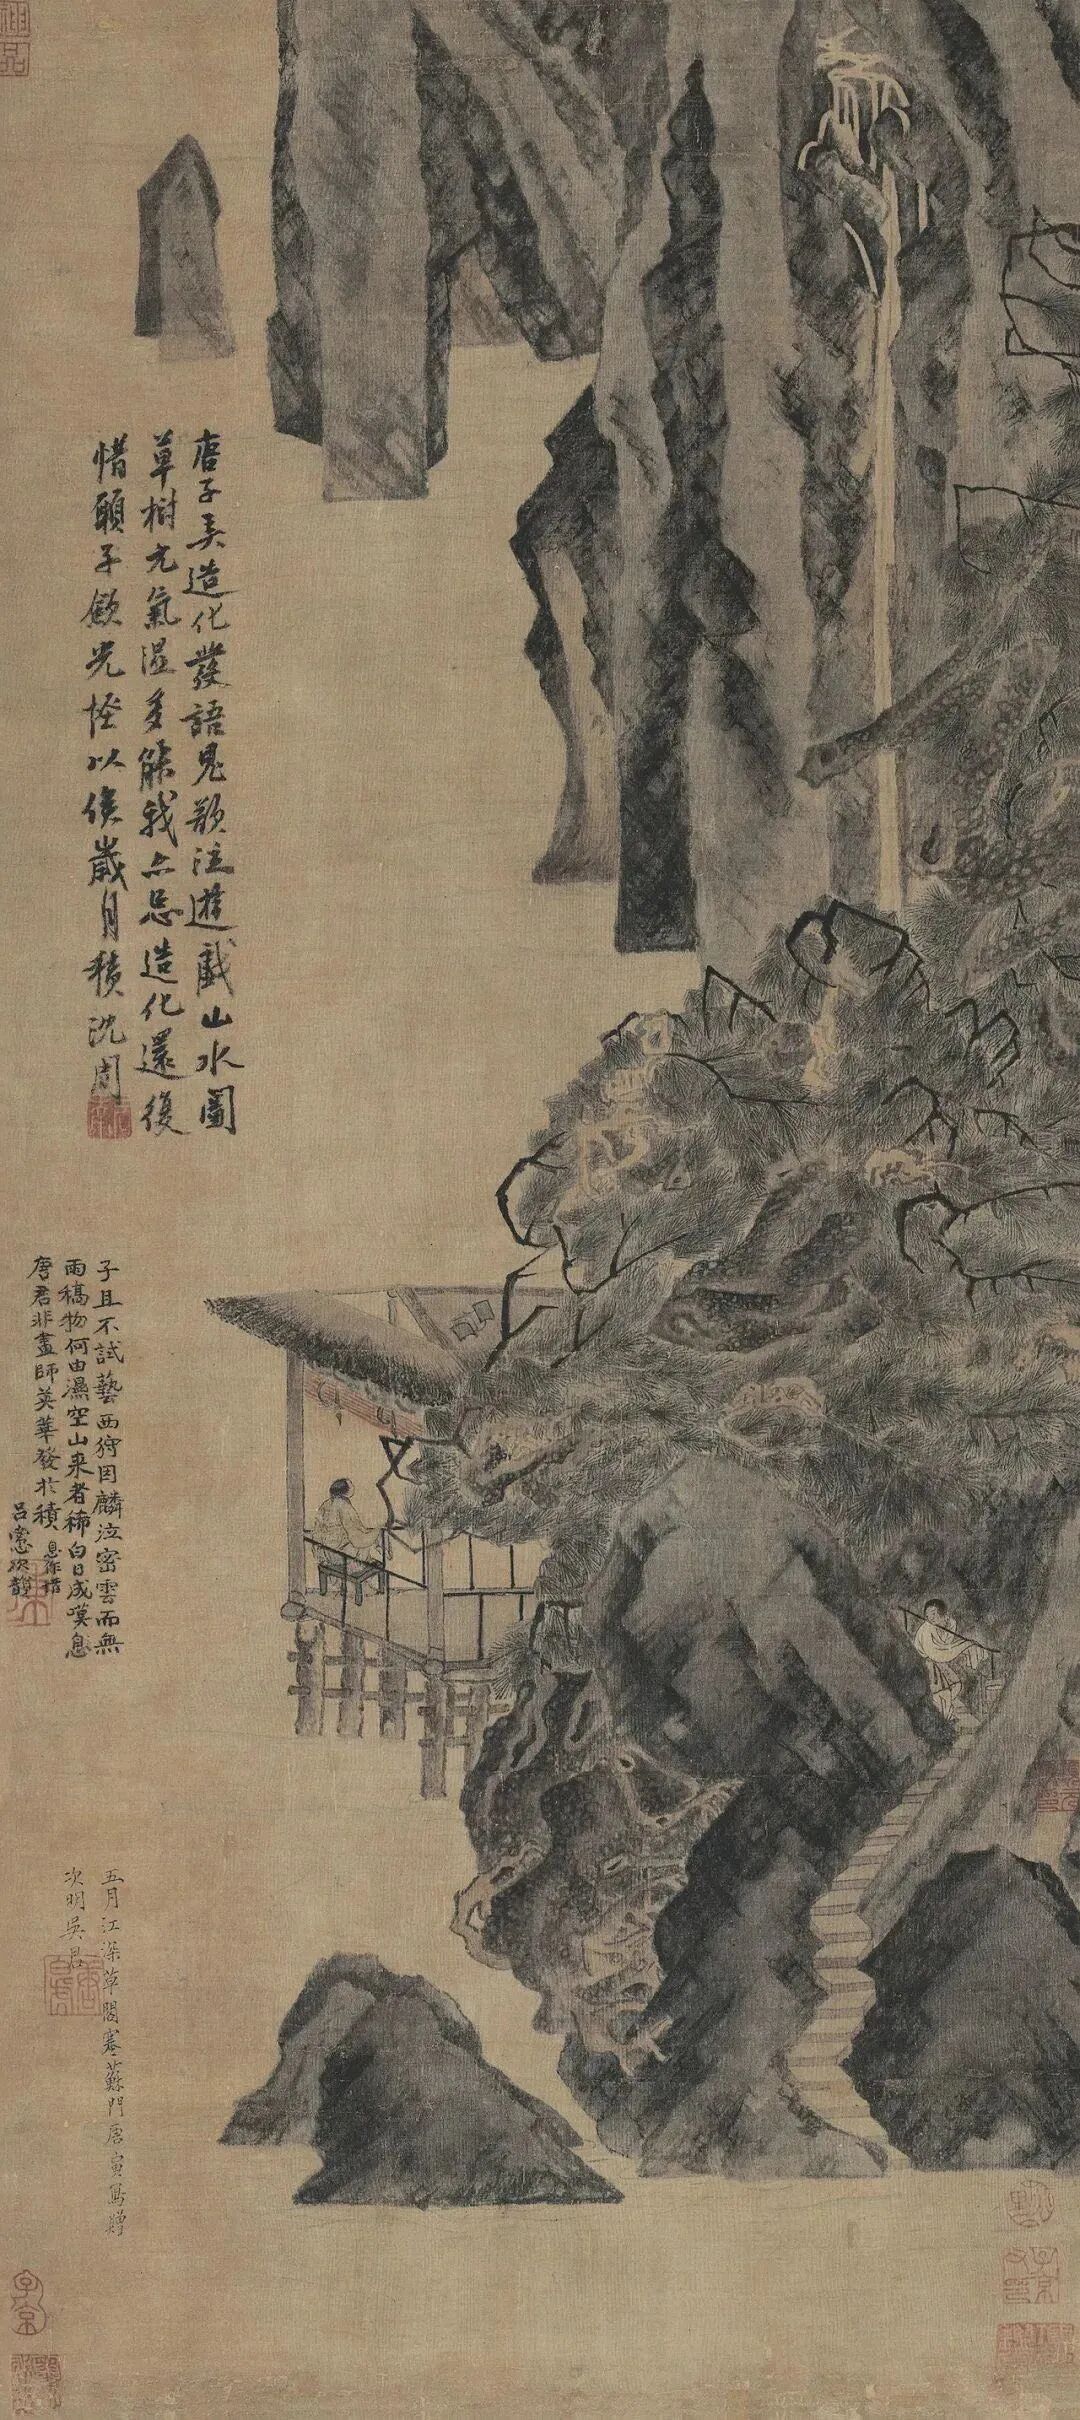 唐子弄造化發語鬼歌泣遊戲山水圖
草樹元氣濕多能我亦忌造化還復
惜願子斂光怪以俟歲月積沈周
子且不試藝西狩因麟泣密雲而無
雨稿物何由濕空山來者稀白日成嘆息
唐君非畫師英華發於積
呂㦂次韻
五月江深草閣寒蘇門唐寅寫贈
次明吳君